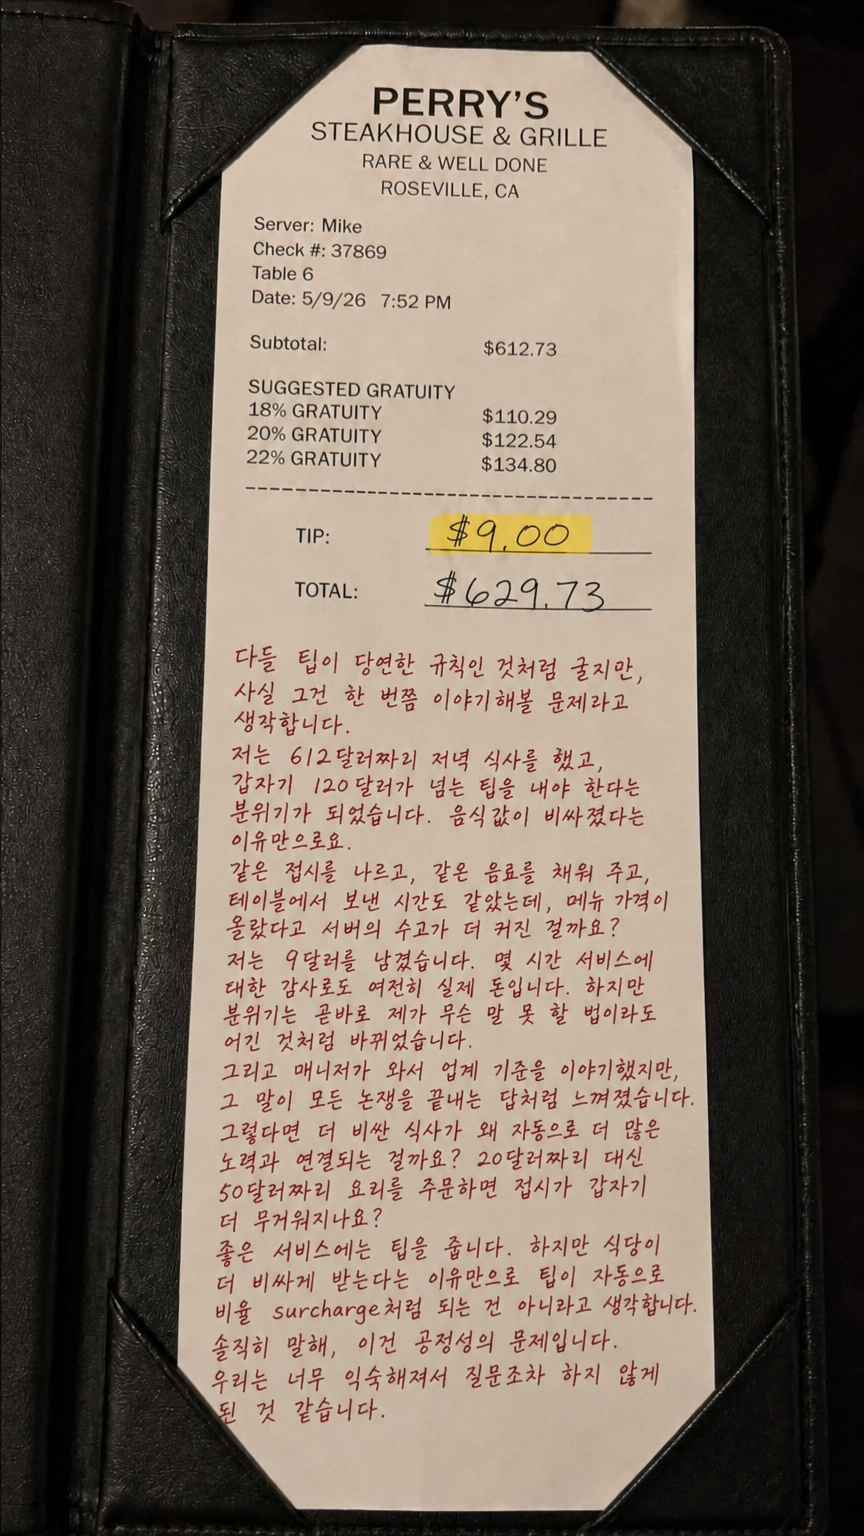 PERRY'S
STEAKHOUSE & GRILLE
RARE & WELL DONE
ROSEVILLE, CA
Server: Mike
Check #: 37869
Table 6
Date: 5/9/26 7:52 PM
Subtotal: $612.73
SUGGESTED GRATUITY
18% GRATUITY $110.29
20% GRATUITY $122.54
22% GRATUITY $134.80
TIP: $9.00
TOTAL: $629.73
다들 팁이 당연한 규칙인 것처럼 굴지만,
사실 그건 한 번쯤 이야기해볼 문제라고
생각합니다.
저는 612달러짜리 저녁 식사를 했고,
갑자기 120달러가 넘는 팁을 내야 한다는
분위기가 되었습니다. 음식값이 비싸졌다는
이유만으로요.
같은 접시를 나르고, 같은 음료를 채워 주고,
테이블에서 보낸 시간도 같았는데, 메뉴 가격이
올랐다고 서버의 수고가 더 커진 걸까요?
저는 9달러를 남겼습니다. 몇 시간 서비스에
대한 감사로도 여전히 실제 돈입니다. 하지만
분위기는 곧바로 제가 무슨 말 못 할 법이라도
어긴 것처럼 바뀌었습니다.
그리고 매니저가 와서 업계 기준을 이야기했지만,
그 말이 모든 논쟁을 끝내는 답처럼 느껴졌습니다.
그렇다면 더 비싼 식사가 왜 자동으로 더 많은
노력과 연결되는 걸까요? 20달러짜리 대신
50달러짜리 요리를 주문하면 접시가 갑자기
더 무거워지나요?
좋은 서비스에는 팁을 줍니다. 하지만 식당이
더 비싸게 받는다는 이유만으로 팁이 자동으로
비율 surcharge처럼 되는 건 아니라고 생각합니다.
솔직히 말해, 이건 공정성의 문제입니다.
우리는 너무 익숙해져서 질문조차 하지 않게
된 것 같습니다.